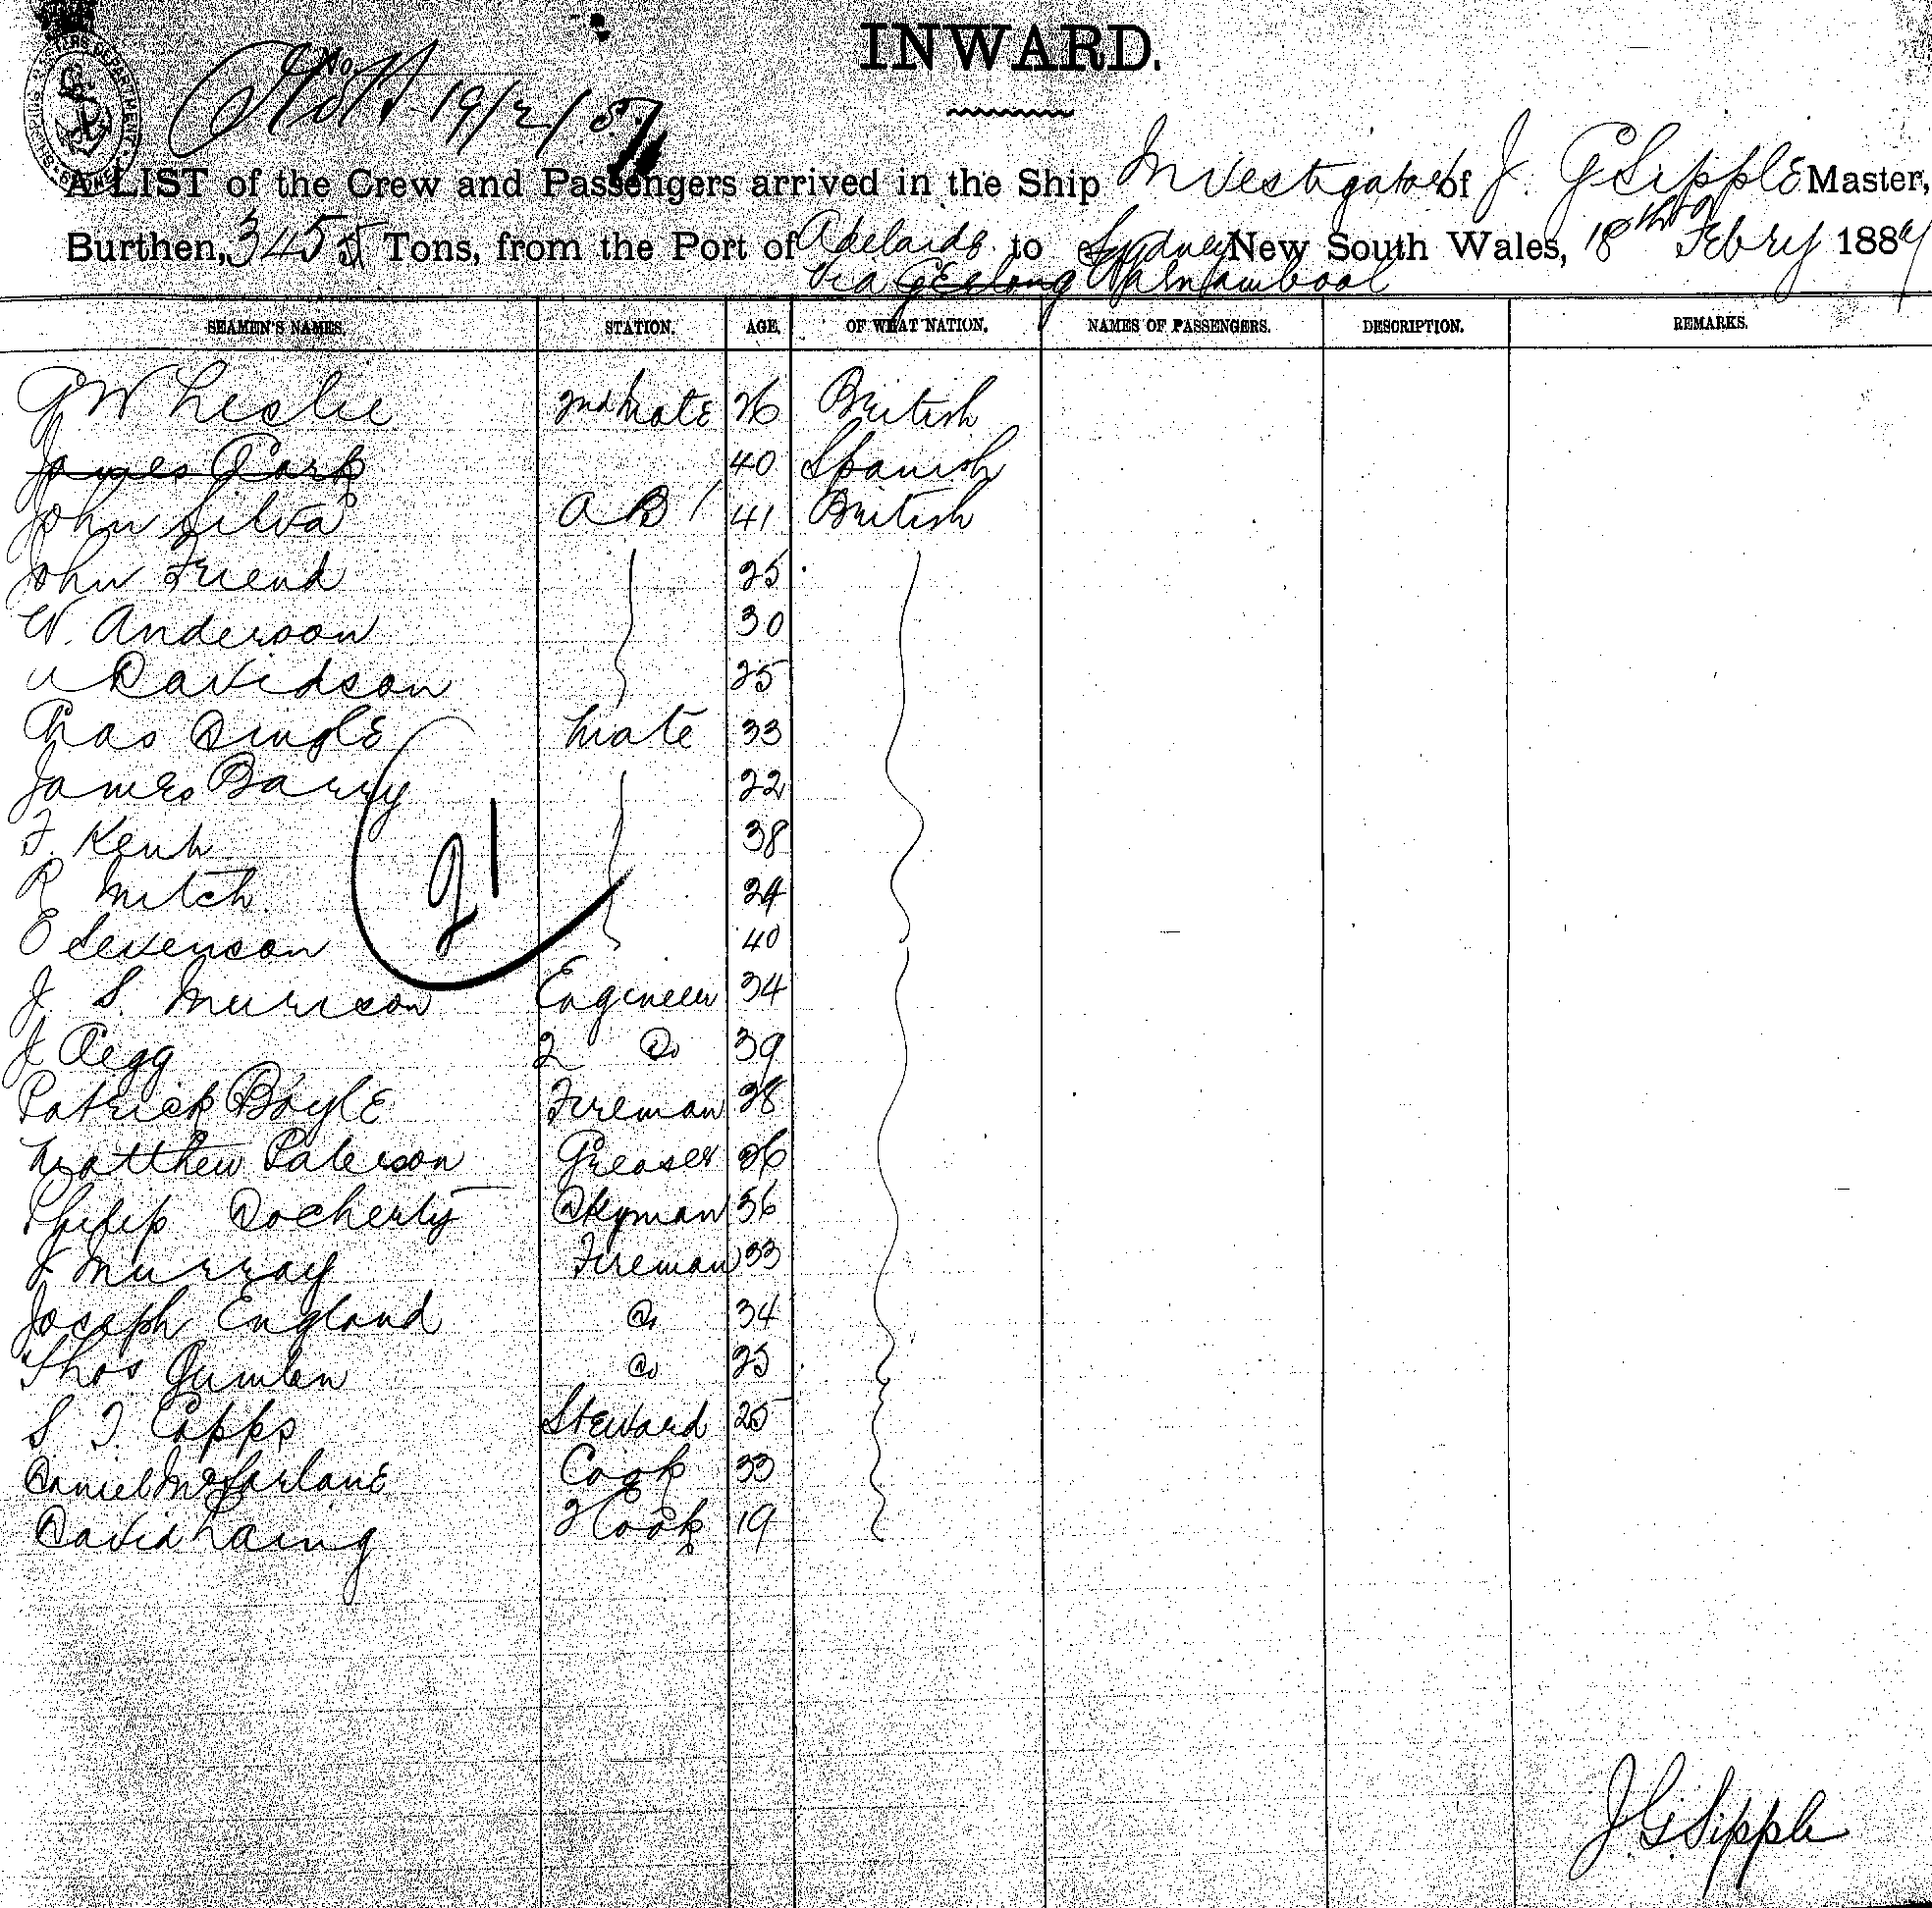 INWARD.
No.
19/2/87
SHIPPING MASTERS DEPARTMENT SYDNEY
A LIST of the Crew and Passengers arrived in the Ship Investigator of J. G Sipple Master,
Burthen, 345 Tons, from the Port of Adelaide to Sydney New South Wales, 18th Febry 1887
Via Geelong Warnambool
SEAMEN'S NAMES. STATION. AGE. OF WHAT NATION. NAMES OF PASSENGERS. DESCRIPTION. REMARKS.
G W Leslie 2nd Mate 26 British
James Park 40 Spanish
John Silva A B 41 British
John Friend 25
W. Anderson 30
" Davidson 25
Chas Dingle Mate 33
James Barry 22
F. Kenh 38
R Mitch 24
E Sevenson 40
21
J S. Murrison Engineer 34
J Pegg 2 Do 39
Patrick Boyle Fireman 28
Matthew Paterson Greaser 36
Philip Docherty Dkyman 36
J Murray Fireman 33
Joseph England Do 34
Thos Do 25
S T. Capps Steward 25
Daniel McFarlane Cook 33
David Laing 2 Cook 19
J. G. Sipple